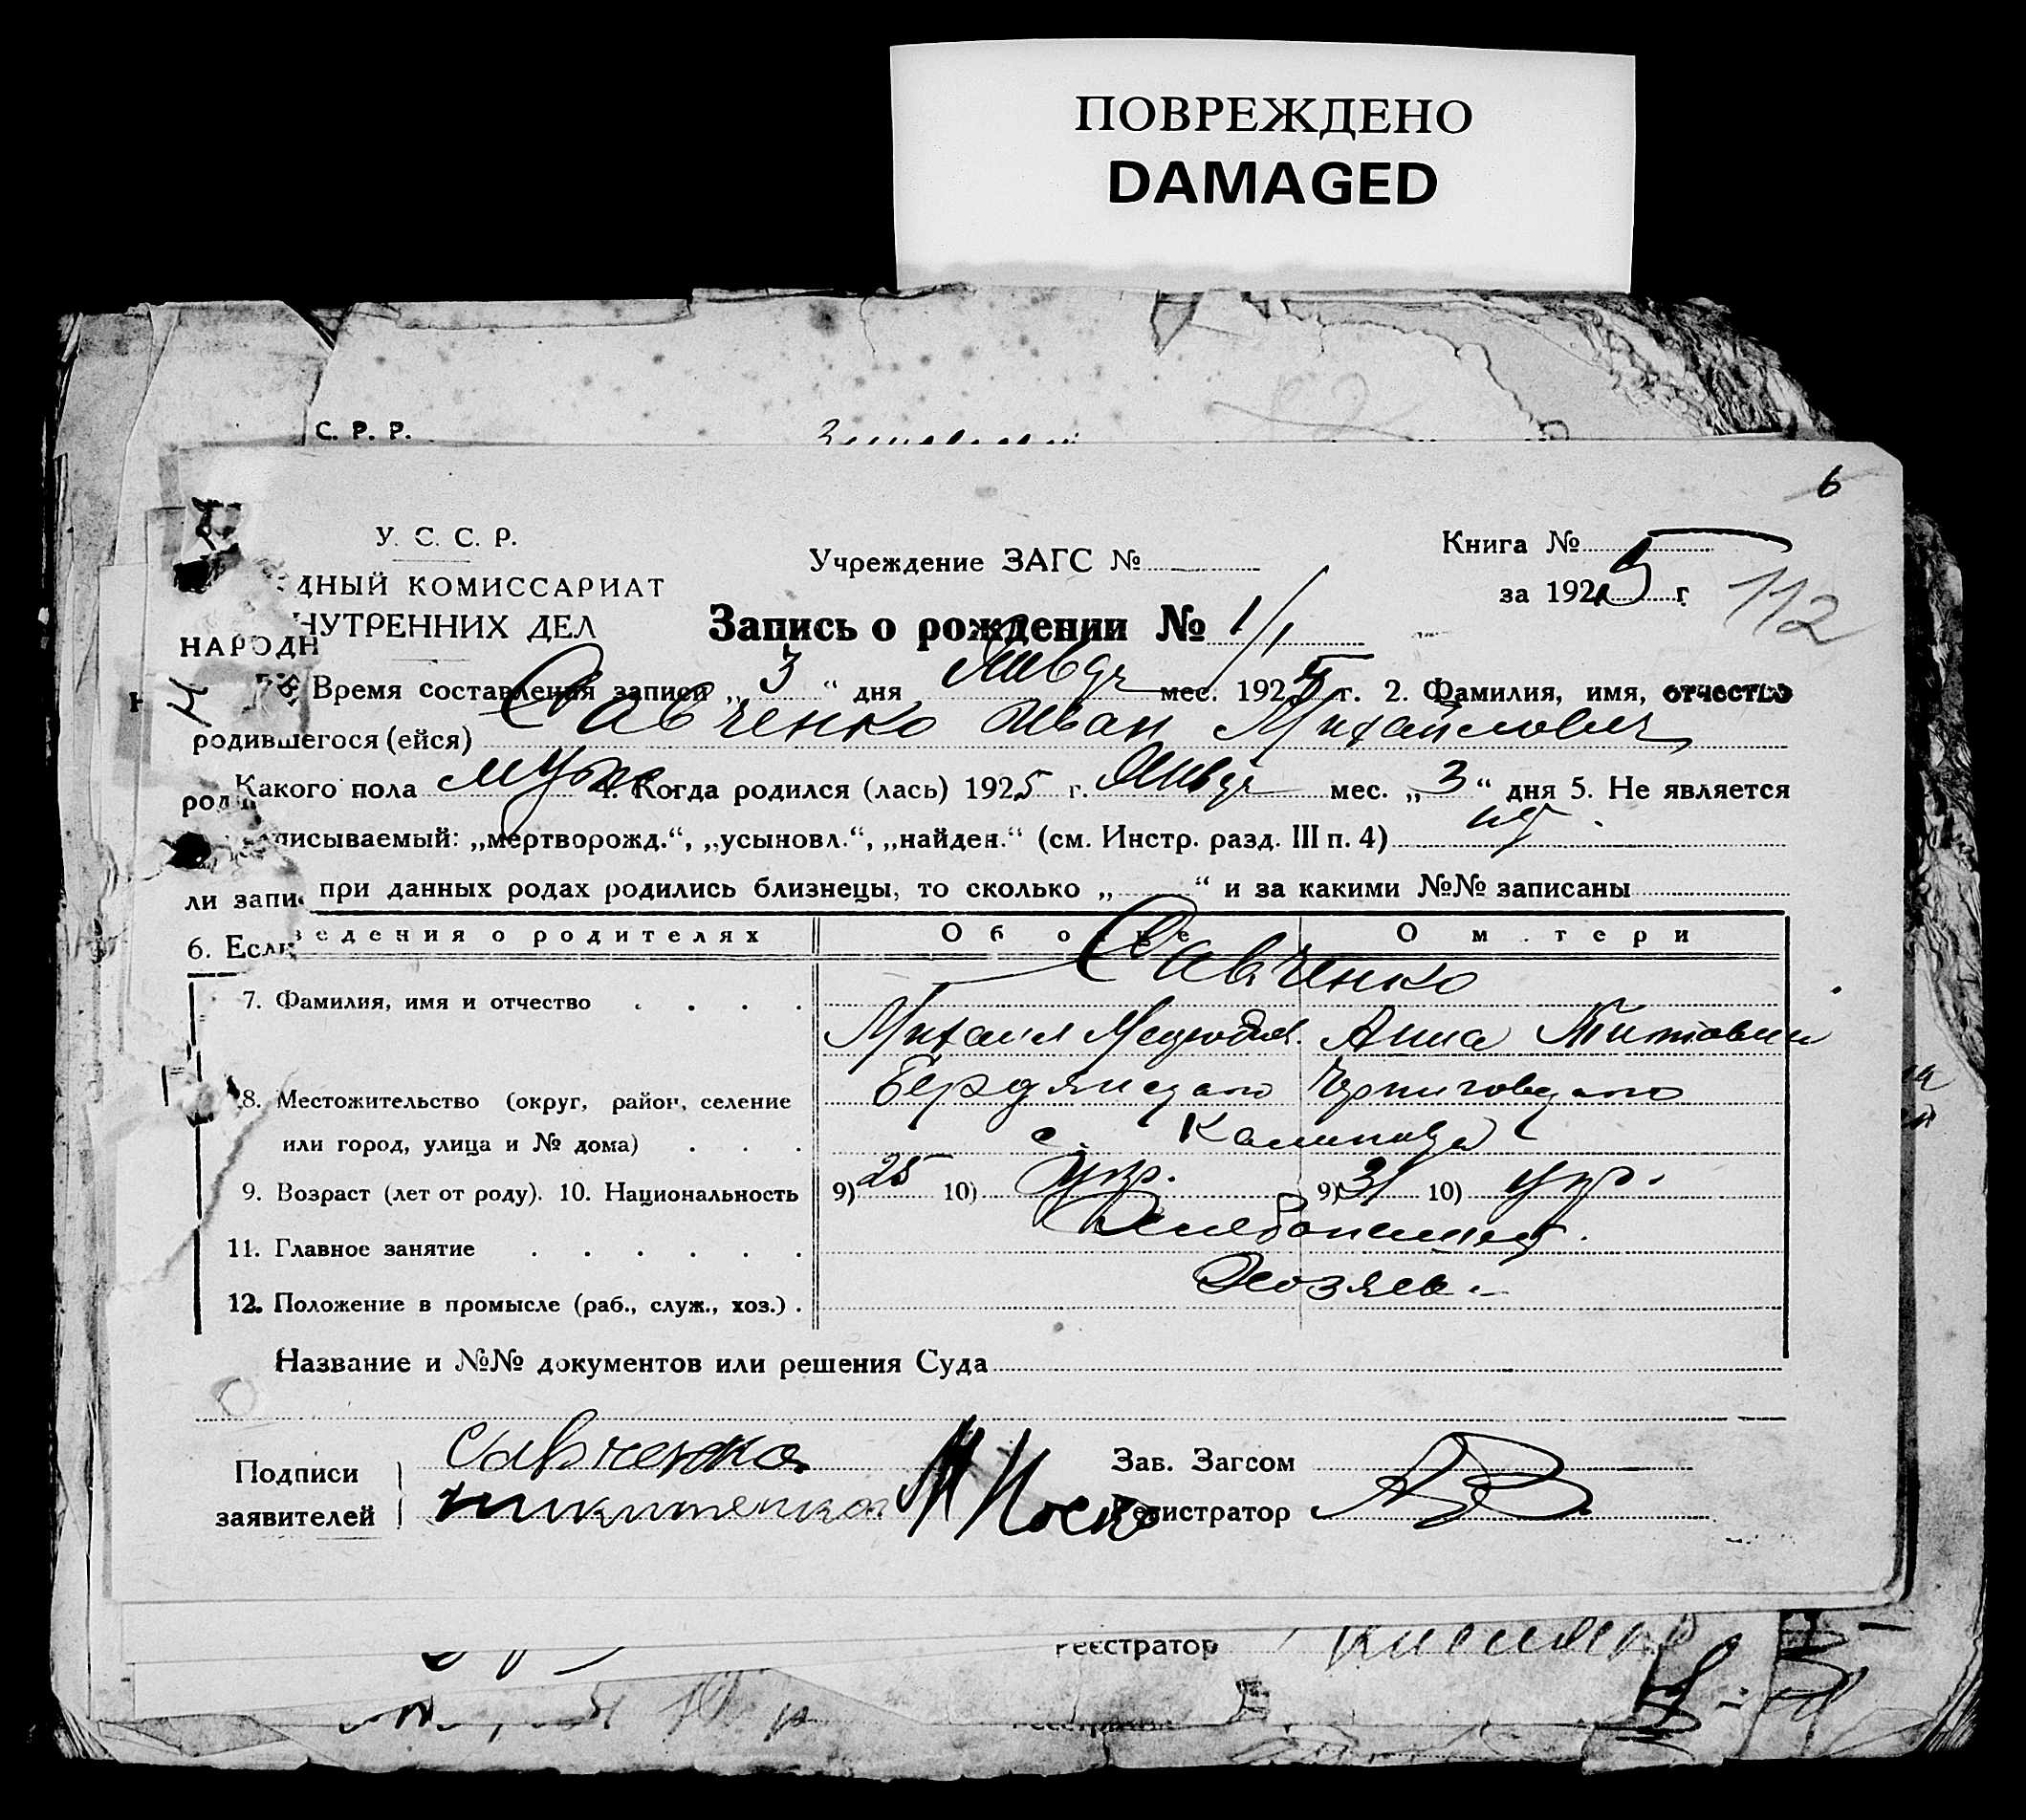 ПОВРЕЖДЕНО
DAMAGED
С. Р. Р.
6
У. С. С. Р.
Учреждение ЗАГС №
Книга №
ДНЫЙ КОМИССАРИАТ
за 1925 г.
112
НУТРЕННИХ ДЕЛ
Запись о рождении № 1/1
НАРОДН
Время составления записи „ 3 “ дня Январ мес. 1925 г. 2. Фамилия, имя, отчество
родившегося (ейся) Савченко Иван Михайлович
Какого пола муж 4. Когда родился (лась) 1925 г. Январ мес. „ 3 “ дня 5. Не является
род
писываемый: „мертворожд.“, „усыновл.“, „найден.“ (см. Инстр. разд. III п. 4) нет
ли запис при данных родах родились близнецы, то сколько „ “ и за какими №№ записаны
6. Если
ведения о родителях Об отце О матери
Савченко
7. Фамилия, имя и отчество
Михаил Анна Титовна
8. Местожительство (округ, район, селение Бердянского Черниговского
или город, улица и № дома) с.
9. Возраст (лет от роду). 10. Национальность 9) 25 10) укр. 9) 31 10) укр.
11. Главное занятие Хлебопашест.
12. Положение в промысле (раб., служ., хоз.) Хозяев.
Название и №№ документов или решения Суда
Подписи заявителей Савченко
Никитенко Носко
Зав. Загсом
Регистратор
Реєстратор